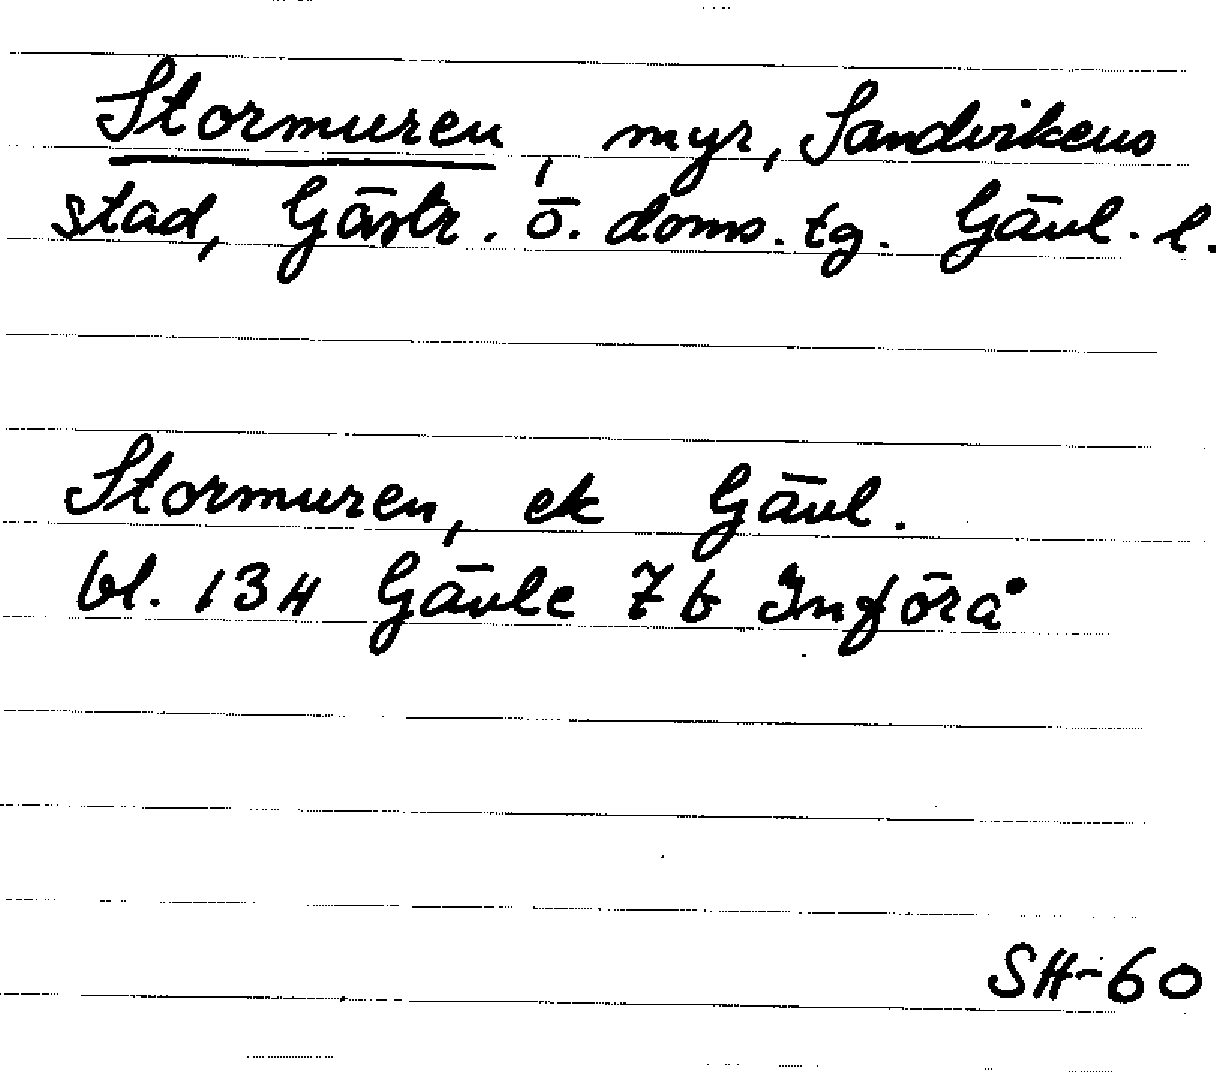 Stormuren, myr, Sandvikens
stad, Gästr. ö. doms. tg. Gävl. l.
Stormuren, ek Gävl.
bl. 134 Gävle 7b Införå
SH-60